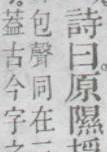 詩曰原隰
包聲同在
蓋古今字